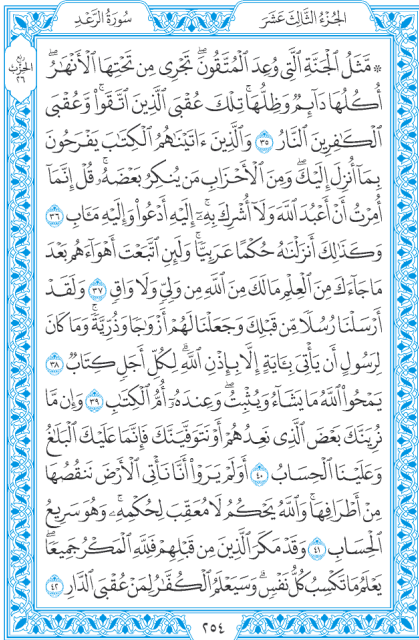 الجُزْءُ الثَّالِثَ عَشَرَ
سُورَةُ الرَّعْدِ
ربع
الحزب
٢٦
۞ مَّثَلُ الْجَنَّةِ الَّتِي وُعِدَ الْمُتَّقُونَۖ تَجْرِي مِن تَحْتِهَا الْأَنْهَٰرُۖ
أُكُلُهَا دَآئِمٌ وَظِلُّهَاۚ تِلْكَ عُقْبَى الَّذِينَ اتَّقَواۚ وَّعُقْبَى
الْكَٰفِرِينَ النَّارُ ٣٥ وَالَّذِينَ ءَاتَيْنَٰهُمُ الْكِتَٰبَ يَفْرَحُونَ
بِمَآ أُنزِلَ إِلَيْكَۖ وَمِنَ الْأَحْزَابِ مَن يُنكِرُ بَعْضَهُۥۚ قُلْ إِنَّمَآ
أُمِرْتُ أَنْ أَعْبُدَ اللَّهَ وَلَآ أُشْرِكَ بِهِۦٓۚ إِلَيْهِ أَدْعُوا وَإِلَيْهِ مَـَٔابِ ٣٦
وَكَذَٰلِكَ أَنزَلْنَٰهُ حُكْمًا عَرَبِيًّاۚ وَلَئِنِ اتَّبَعْتَ أَهْوَآءَهُم بَعْدَ
مَا جَآءَكَ مِنَ الْعِلْمِ مَا لَكَ مِنَ اللَّهِ مِن وَلِيٍّ وَلَا وَاقٍ ٣٧ وَلَقَدْ
أَرْسَلْنَا رُسُلًا مِّن قَبْلِكَ وَجَعَلْنَا لَهُمْ أَزْوَٰجًا وَذُرِّيَّةًۚ وَمَا كَانَ
لِرَسُولٍ أَن يَأْتِيَ بِـَٔايَةٍ إِلَّا بِإِذْنِ اللَّهِۗ لِكُلِّ أَجَلٍ كِتَابٌ ٣٨
يَمْحُوا اللَّهُ مَا يَشَآءُ وَيُثْبِتُۖ وَعِندَهُۥٓ أُمُّ الْكِتَٰبِ ٣٩ وَإِن مَّا
نُرِيَنَّكَ بَعْضَ الَّذِي نَعِدُهُمْ أَوْ نَتَوَفَّيَنَّكَ فَإِنَّمَا عَلَيْكَ الْبَلَٰغُ
وَعَلَيْنَا الْحِسَابُ ٤٠ أَوَلَمْ يَرَوْا أَنَّا نَأْتِي الْأَرْضَ نَنقُصُهَا
مِنْ أَطْرَافِهَاۚ وَاللَّهُ يَحْكُمُ لَا مُعَقِّبَ لِحُكْمِهِۦۚ وَهُوَ سَرِيعُ
الْحِسَابِ ٤١ وَقَدْ مَكَرَ الَّذِينَ مِن قَبْلِهِمْ فَلِلَّهِ الْمَكْرُ جَمِيعًاۖ
يَعْلَمُ مَا تَكْسِبُ كُلُّ نَفْسٍۗ وَسَيَعْلَمُ الْكُفَّٰرُ لِمَنْ عُقْبَى الدَّارِ ٤٢
٢٥٤